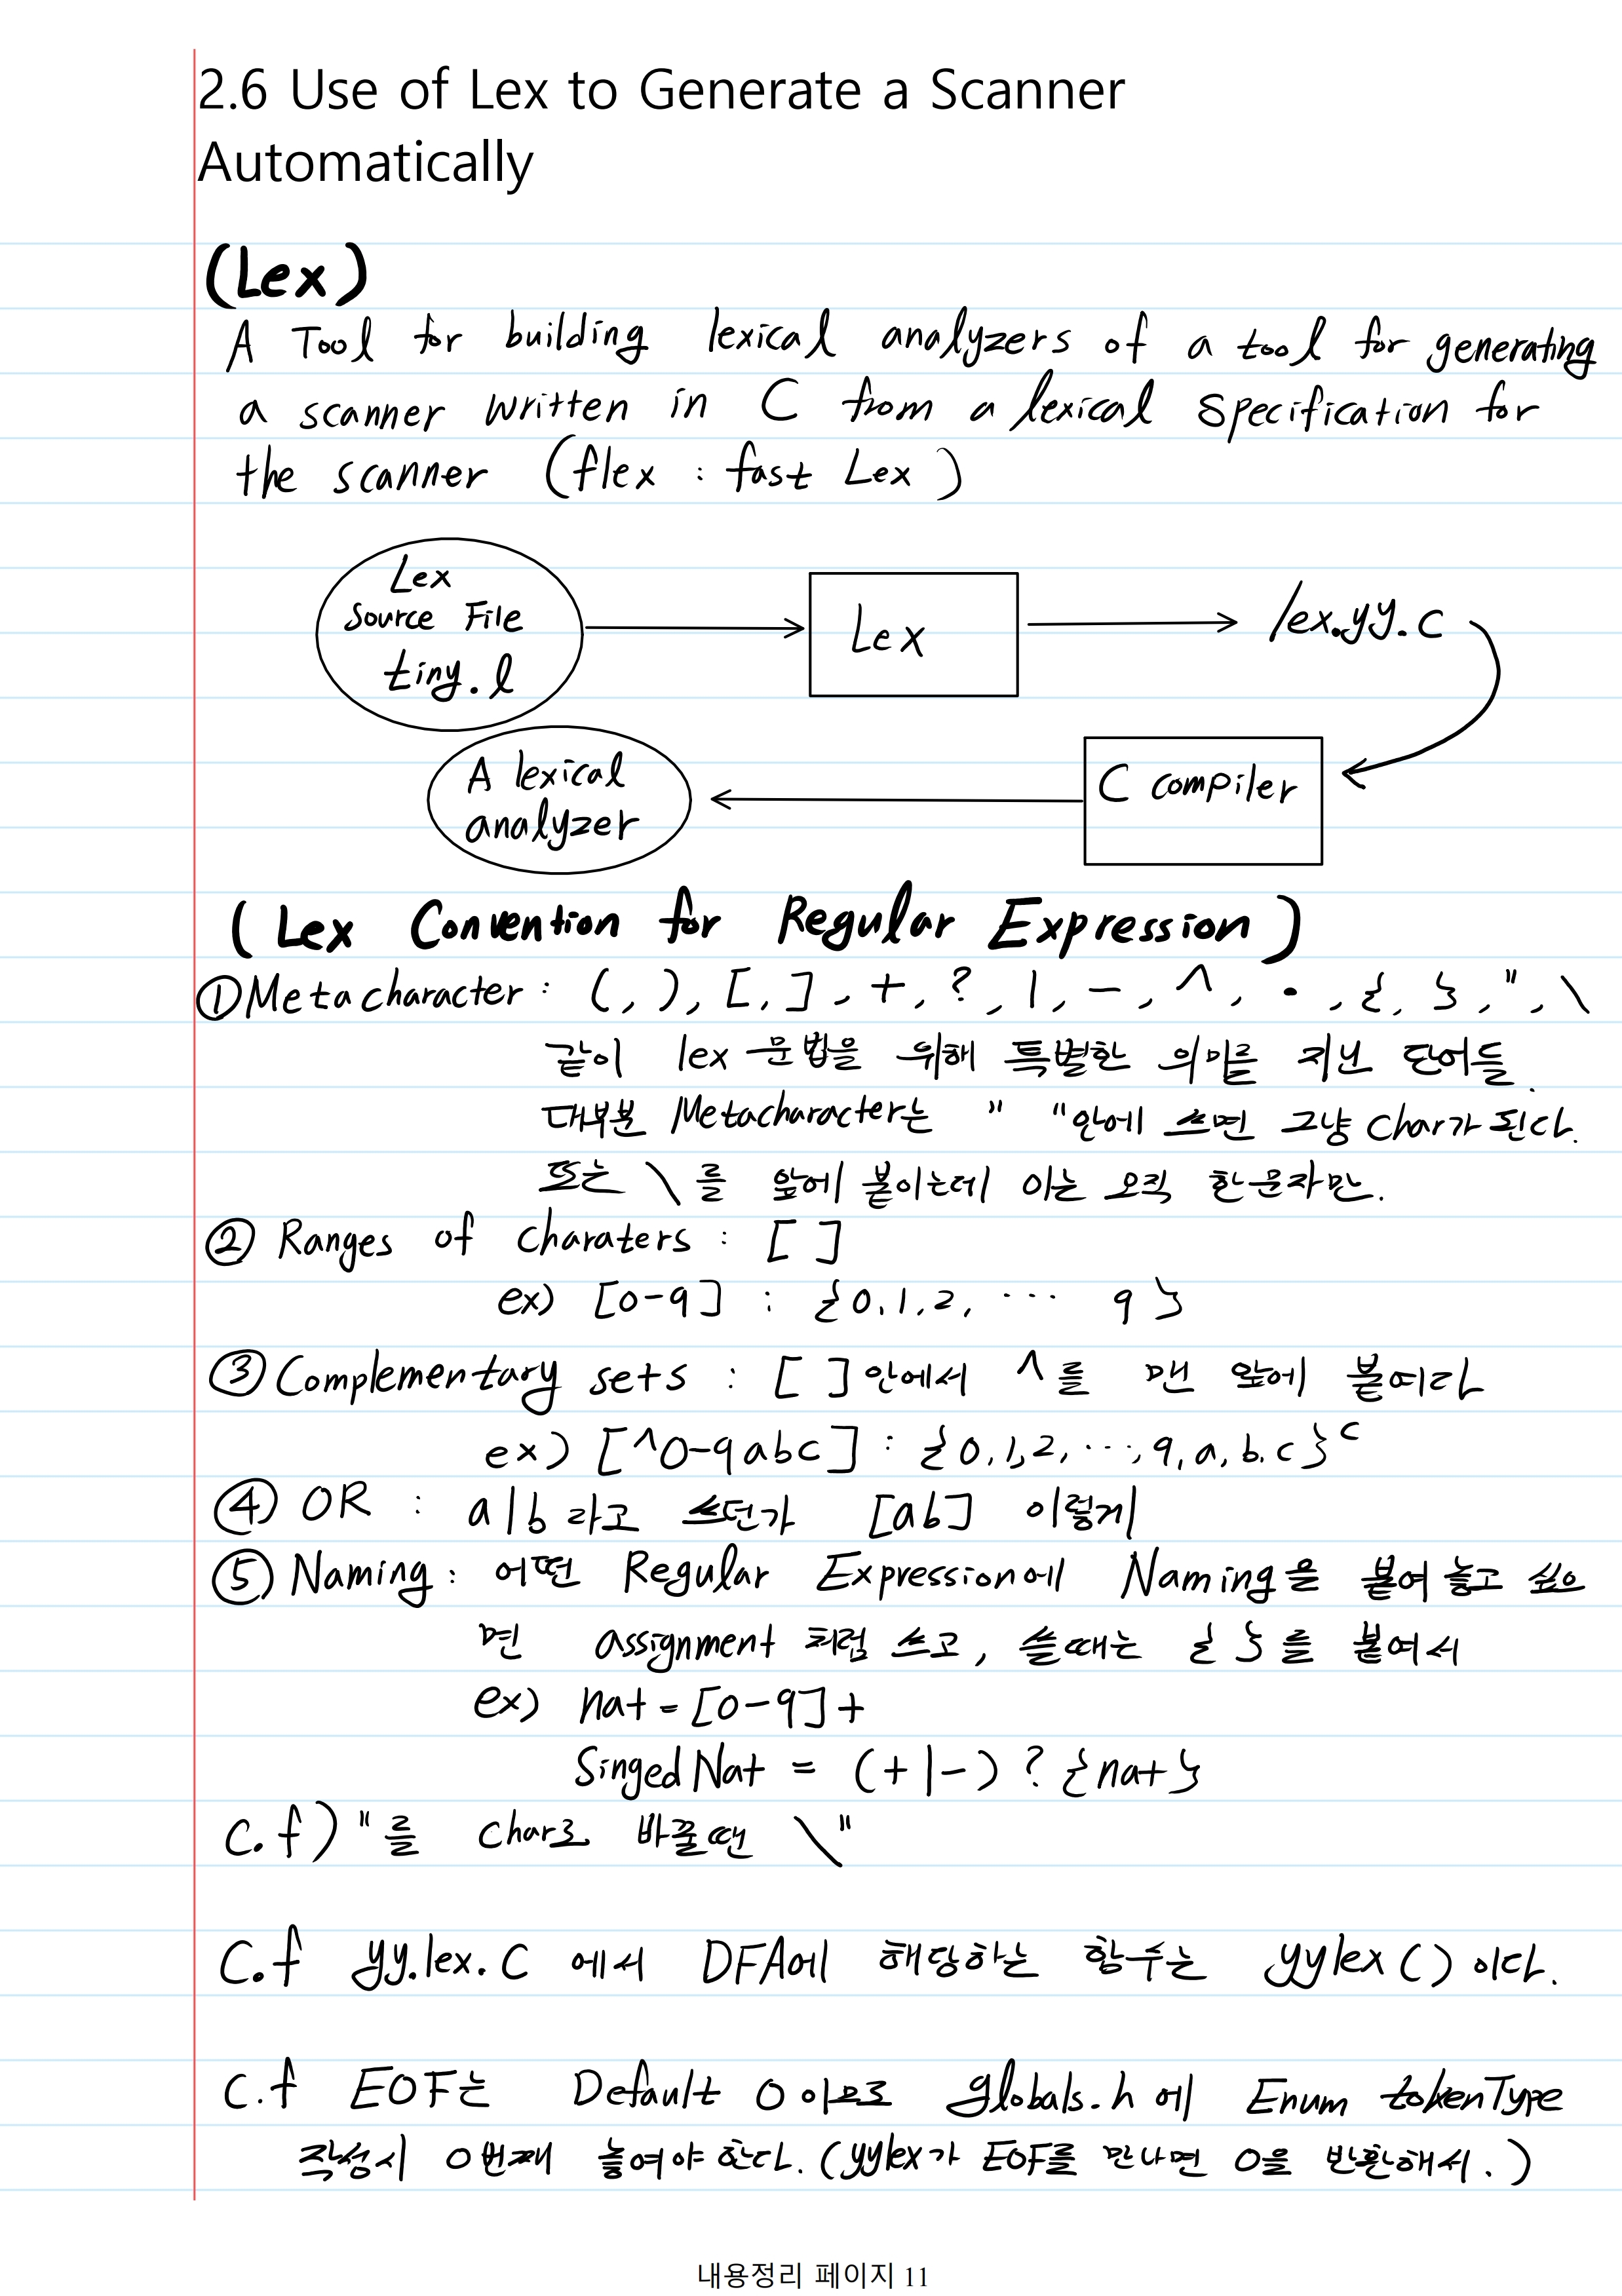 2.6 Use of Lex to Generate a Scanner
Automatically
(Lex)
A Tool for building lexical analyzers of a tool for generating
a scanner written in C from a lexical Specification for
the scanner (flex : fast Lex )
Lex
Source File
tiny.l
Lex
lex.yy.c
A lexical
analyzer
C compiler
( Lex Convention for Regular Expression )
① Metacharacter : (, ), [, ], +, ?, |, -, ^, ·, {, }, ", \
같이 lex 문법을 위해 특별한 의미를 지닌 단어들.
대부분 Metacharacter는 " "안에 쓰면 그냥 Char가 된다.
또는 \를 앞에 붙이는데 이는 오직 한문자만.
② Ranges of charaters : [ ]
ex) [0-9] : {0,1,2, ... 9}
③ Complementary sets : [ ]안에서 ^를 맨 앞에 붙여라
ex) [^0-9abc] : {0,1,2,...,9,a,b,c}ᶜ
④ OR : a|b 라고 쓰던가 [ab] 이렇게
⑤ Naming : 어떤 Regular Expression에 Naming을 붙여 놓고 싶으
면 assignment 처럼 쓰고, 쓸때는 { }를 붙여서
ex) nat = [0-9]+
SingedNat = (+|-)?{nat}
C.f) "를 char로 바꿀땐 \"
C.f yy.lex.C 에서 DFA에 해당하는 함수는 yylex() 이다.
C.f EOF는 Default 0 이므로 globals.h 에 Enum tokenType
작성시 0번째 놓여야 한다. (yylex가 EOF를 만나면 0을 반환해서.)
내용정리 페이지 11